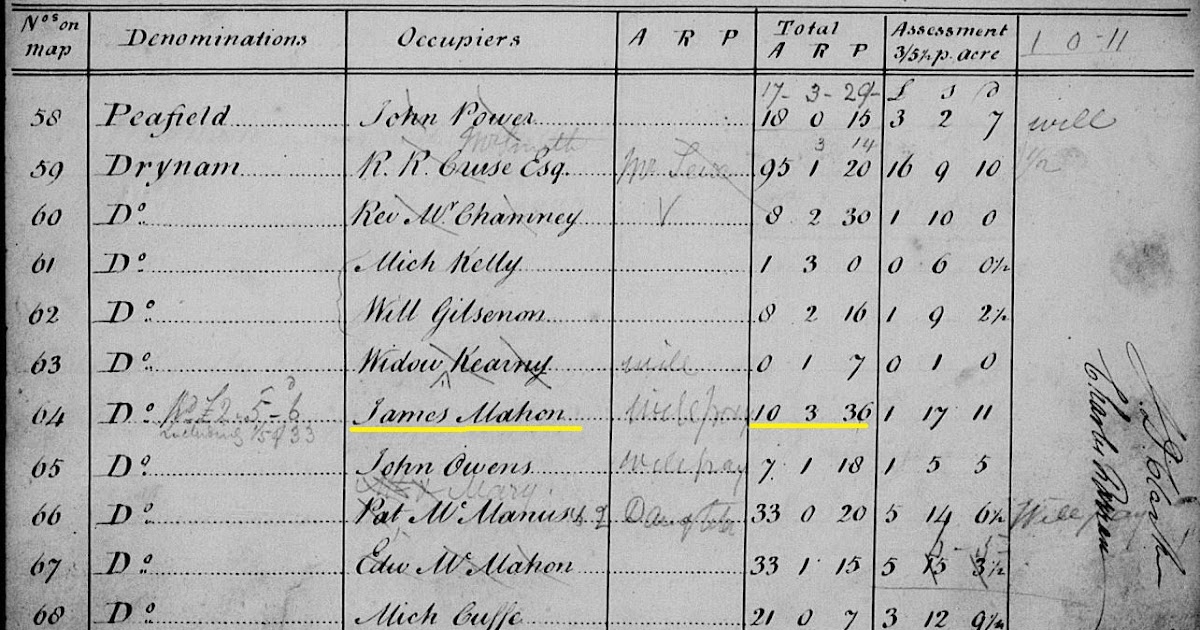 Nos on map Denominations Occupiers A R P Total A R P Assessment 3/5½ p. acre 1 0 11
17 - 3 - 29 £ s d
58 Peafield John Power 18 0 15 3 2 7 will
3 14
59 Drynam R. R. Cruse Esq. Mr 95 1 20 16 9 10 ½
60 Do Rev Mr Chamney 8 2 30 1 10 0
61 Do Mich Kelly 1 3 0 0 6 0½
62 Do Will Gilsenon 8 2 16 1 9 2½
63 Do Widow Kearny will 0 1 7 0 1 0
64 Do No £2 - 5 - 6 James Mahon will pay 10 3 36 1 17 11
including
65 Do John Owens will pay 7 1 18 1 5 5
Mary
66 Do Pat McManus Daughter 33 0 20 5 14 6½ Will pay
67 Do Edw McMahon 33 1 15 5 15 3½
68 Do Mich Cuffe 21 0 7 3 12 9½
Charles